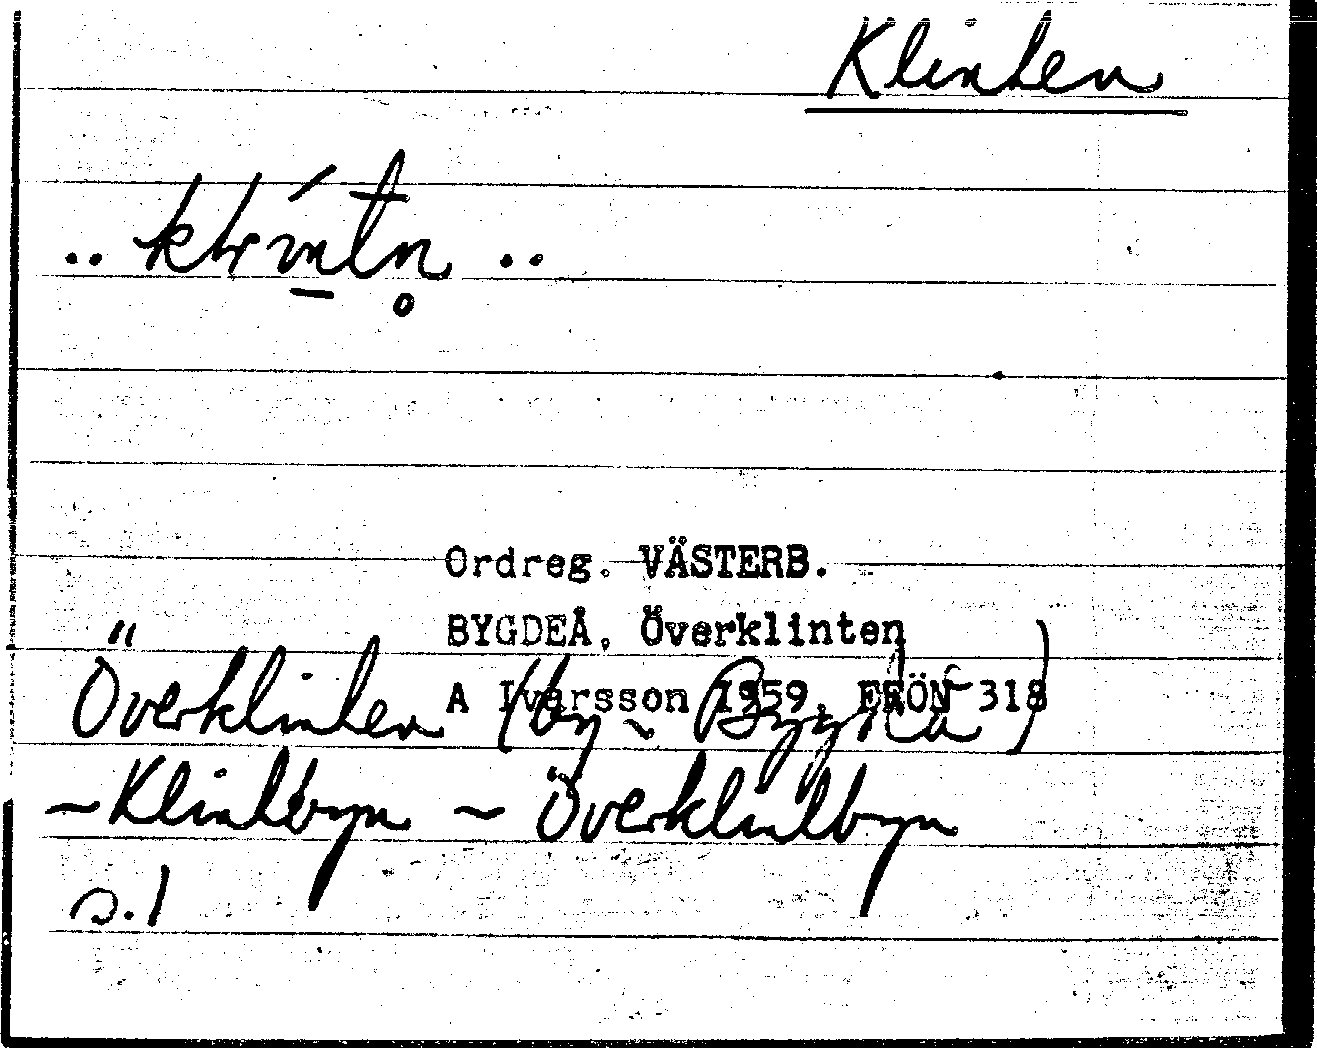 Klinten
Ordreg. VÄSTERB.
BYGDEÅ, Överklinten
A Ivarsson 1959. ERÖN 318
Överklinten (by ~ Bygdeå)
~ Klintbyn ~ Överklintbyn
s. 1